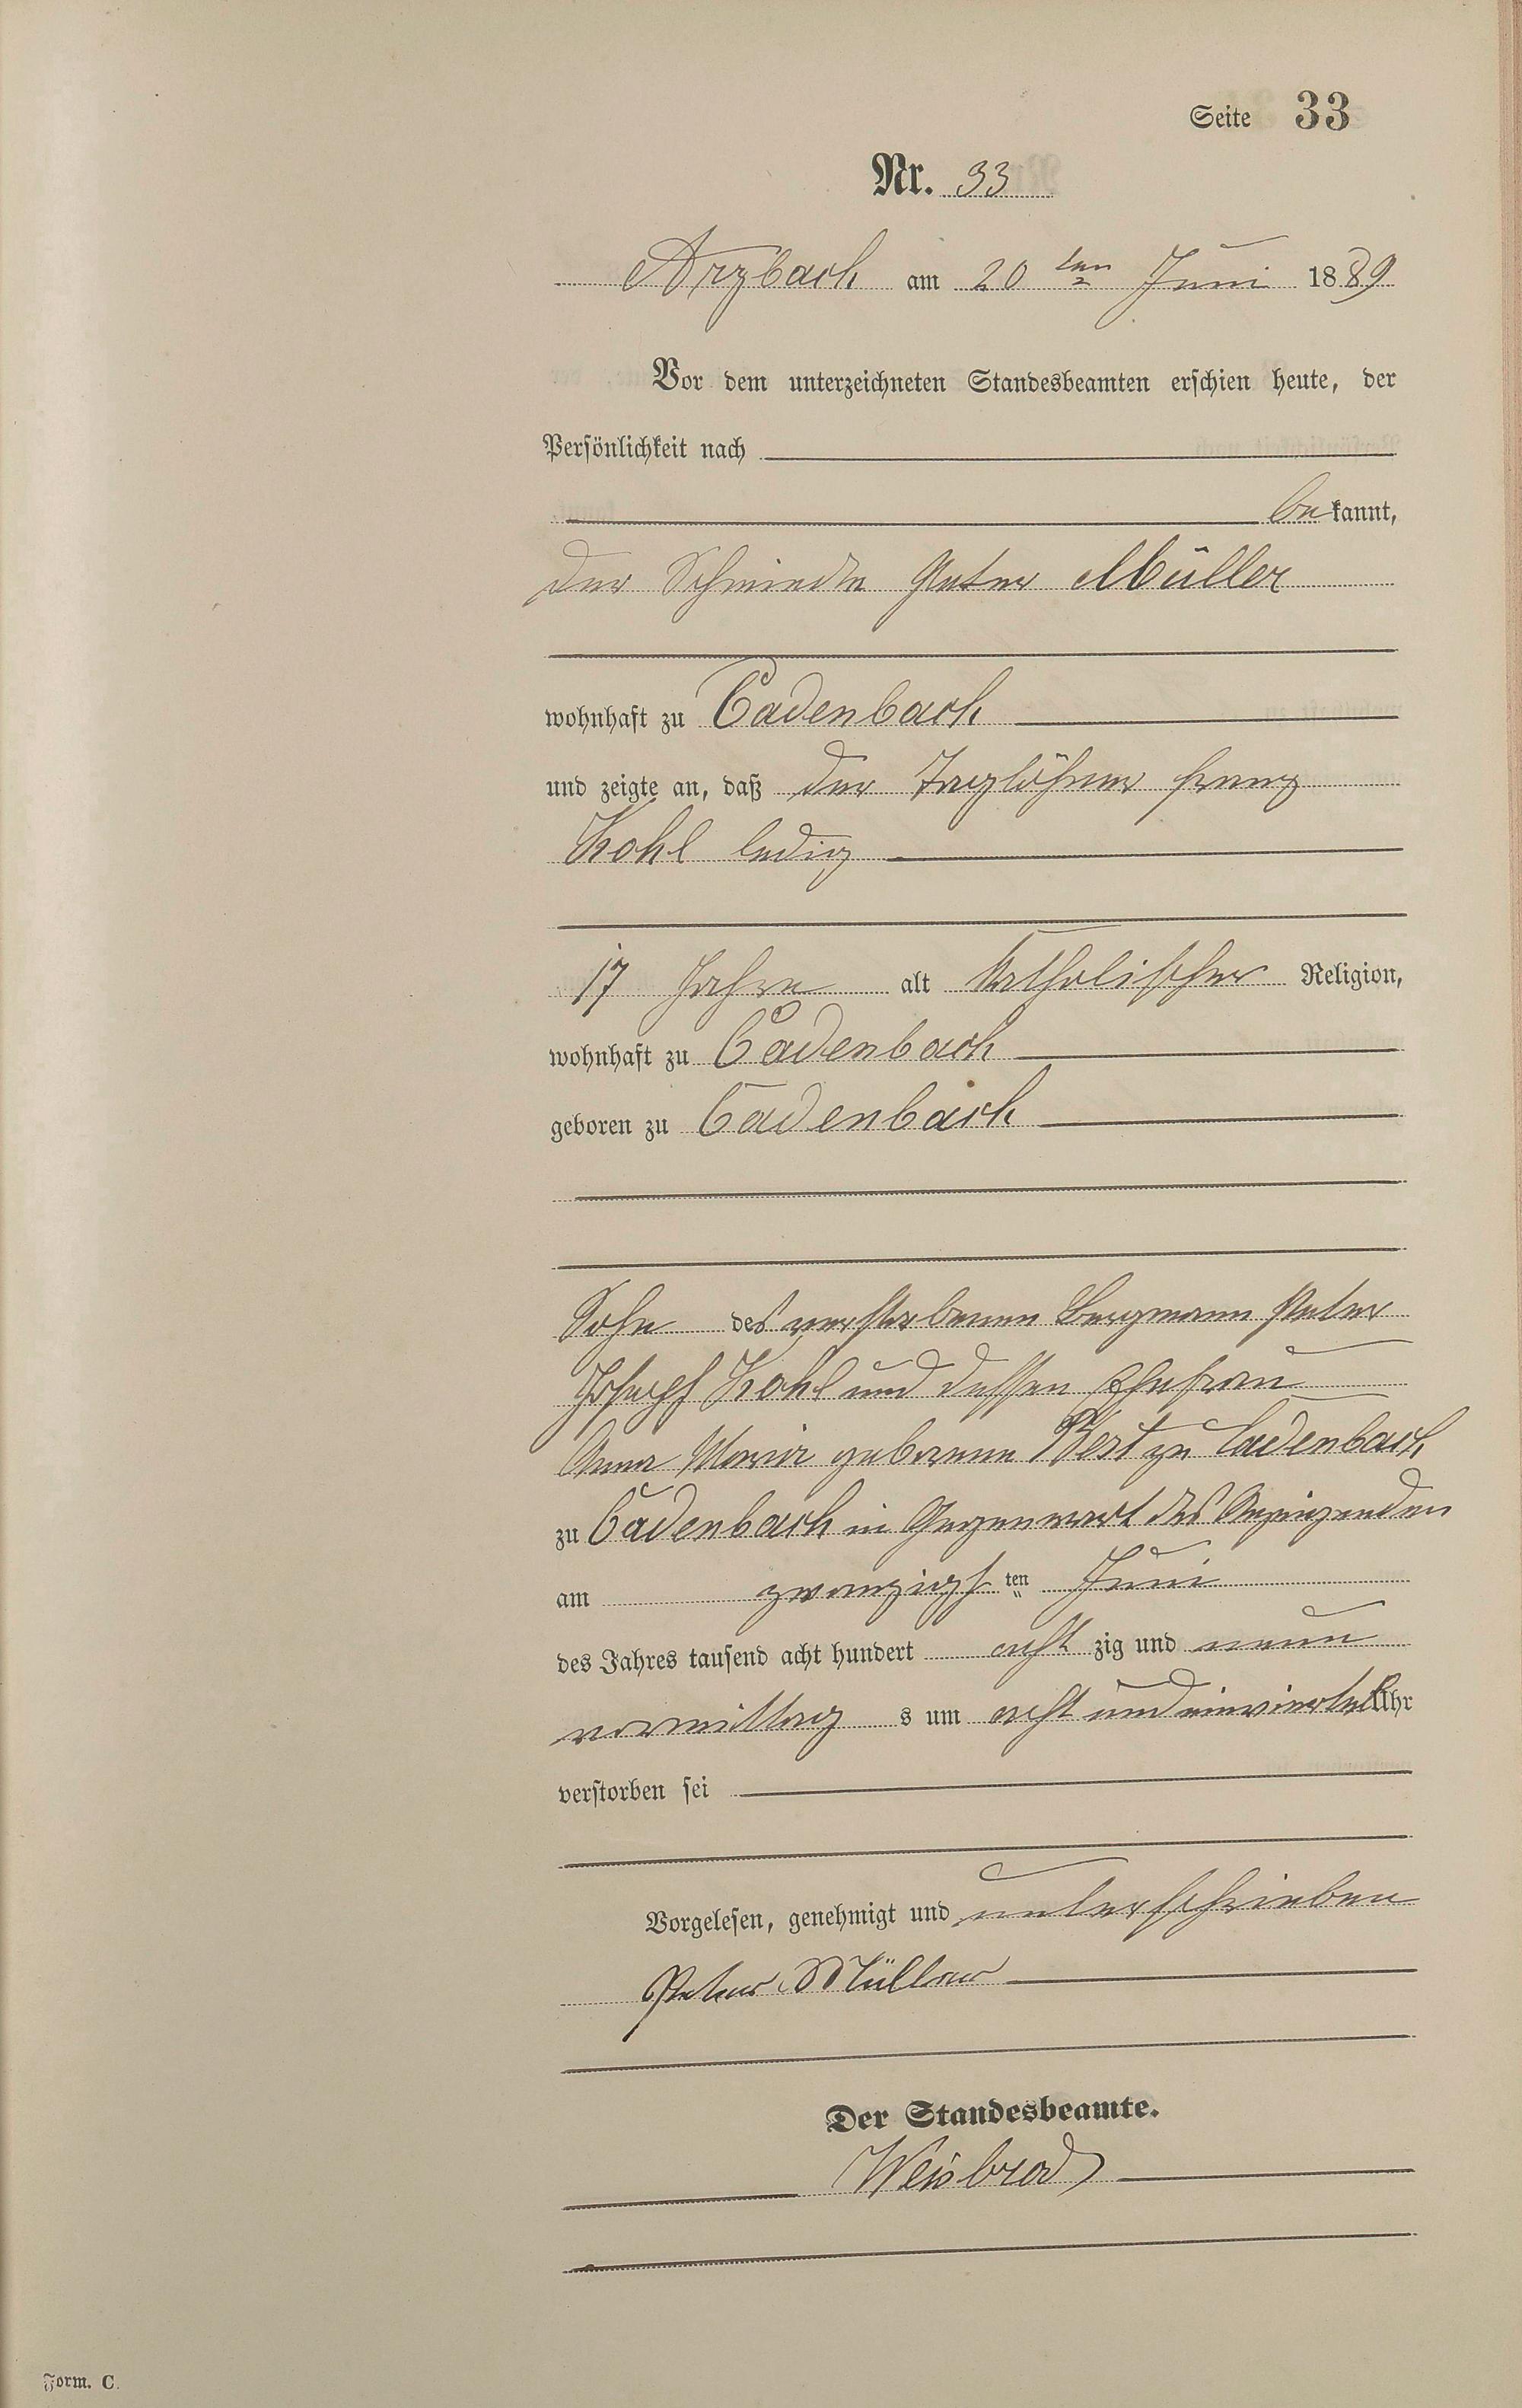 Seite 33
Nr. 33
Arzbach am 20ten Juni 1889
Vor dem unterzeichneten Standesbeamten erschien heute, der
Persönlichkeit nach
bekannt,
der Schmiede Peter Müller
wohnhaft zu Cadenbach
und zeigte an, daß der Taglöhner Franz
Kohl ledig
17 Jahre alt katholischer Religion,
wohnhaft zu Cadenbach
geboren zu Cadenbach
Sohn des verstorbenen Bergmann Peter
Joseph Kohl und dessen Ehefrau
Anna Maria geborene Best zu Cadenbach
zu Cadenbach in Gegenwart des Anzeigenden
am zwanzigsten Juni
des Jahres tausend acht hundert acht zig und neun
vormittag s um acht und einviertel Uhr
verstorben sei
Vorgelesen, genehmigt und unterschrieben
Peter Müller
Der Standesbeamte.
Weisbrod
Form. C.